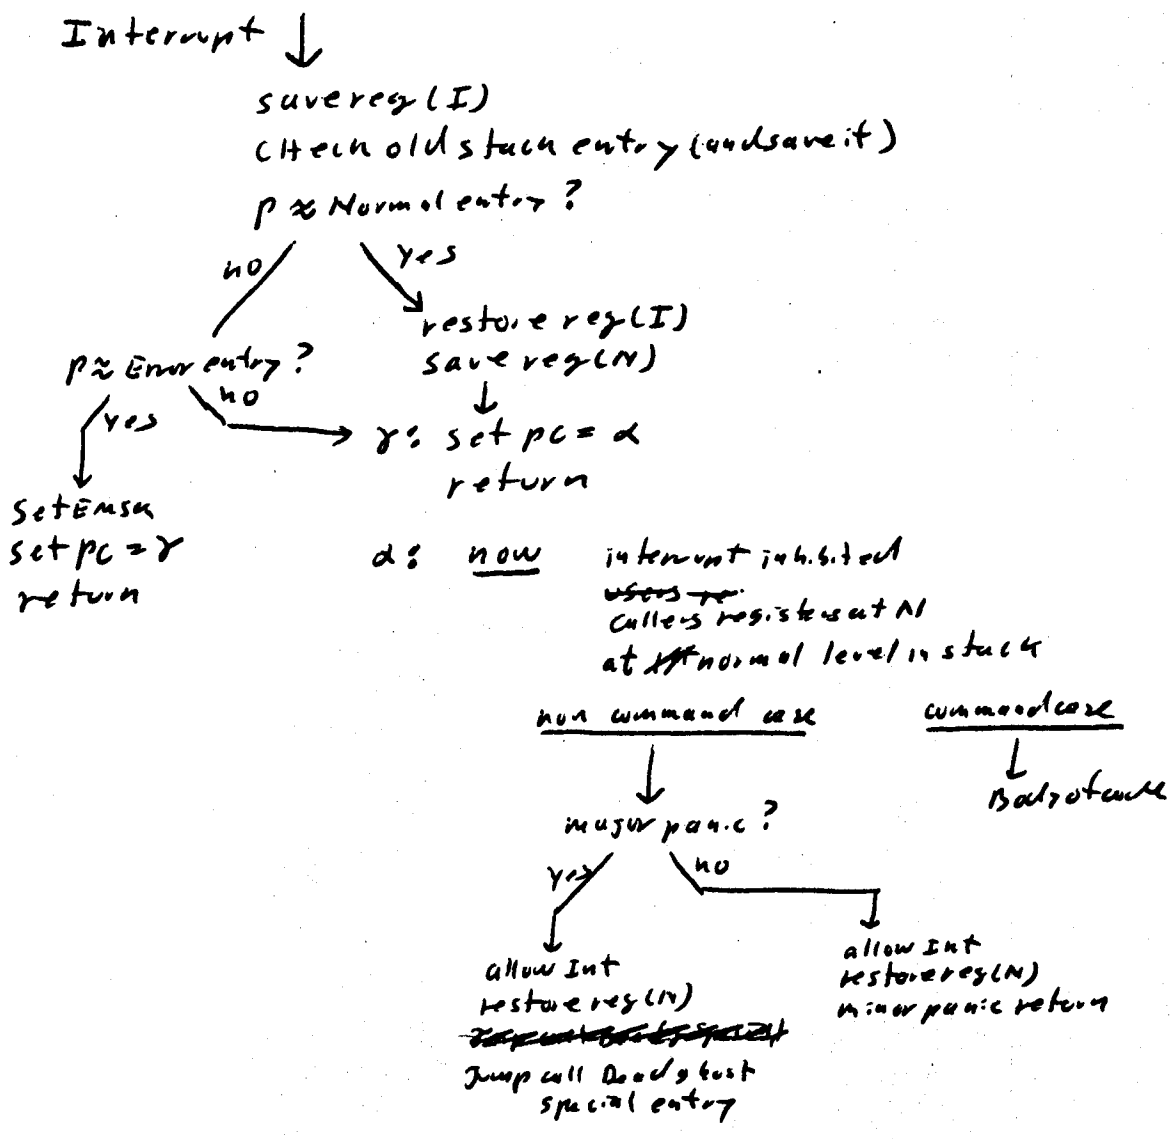 Interrupt
save reg (I)
CHeck old stack entry (and save it)
P ≈ Normal entry?
no
yes
restore reg (I)
save reg (N)
P ≈ Error entry?
no
yes
γ: set pc = α
return
Set EMSK
set pc = γ
return
α: now
interrupt inhibited
users re
callers registers at N
at normal level in stack
non command case
command case
Body of code
major panic?
yes
no
allow Int
restore reg (N)
Jump call Deadghost
special entry
allow Int
restore reg (N)
minor panic return